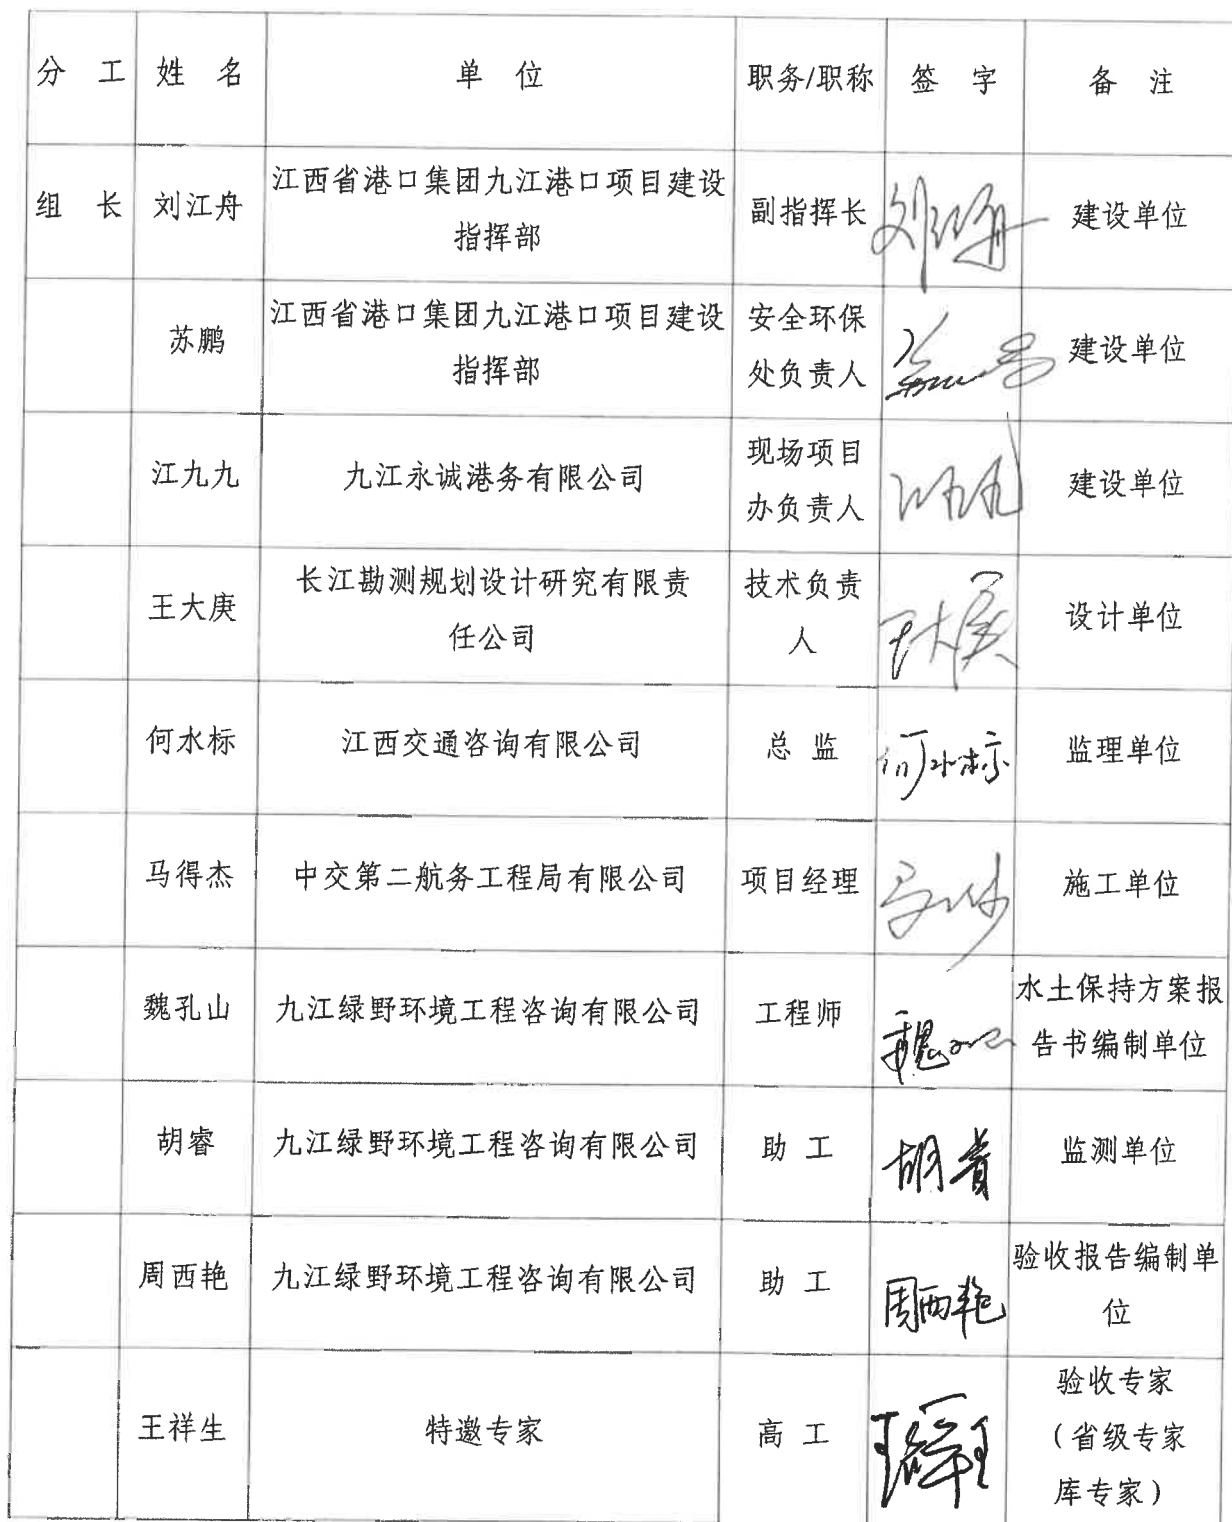 分 工 姓 名 单 位 职务/职称 签 字 备 注
组 长 刘江舟 江西省港口集团九江港口项目建设 副指挥长 刘江舟 建设单位
指挥部
苏鹏 江西省港口集团九江港口项目建设 安全环保 建设单位
指挥部 处负责人
江九九 九江永诚港务有限公司 现场项目 江九九 建设单位
办负责人
王大庚 长江勘测规划设计研究有限责 技术负责 王大庚 设计单位
任公司 人
何水标 江西交通咨询有限公司 总 监 何水标 监理单位
马得杰 中交第二航务工程局有限公司 项目经理 施工单位
魏孔山 九江绿野环境工程咨询有限公司 工程师 水土保持方案报
告书编制单位
胡睿 九江绿野环境工程咨询有限公司 助 工 胡睿 监测单位
周西艳 九江绿野环境工程咨询有限公司 助 工 周西艳 验收报告编制单
位
王祥生 特邀专家 高 工 王祥生 验收专家
（省级专家
库专家）